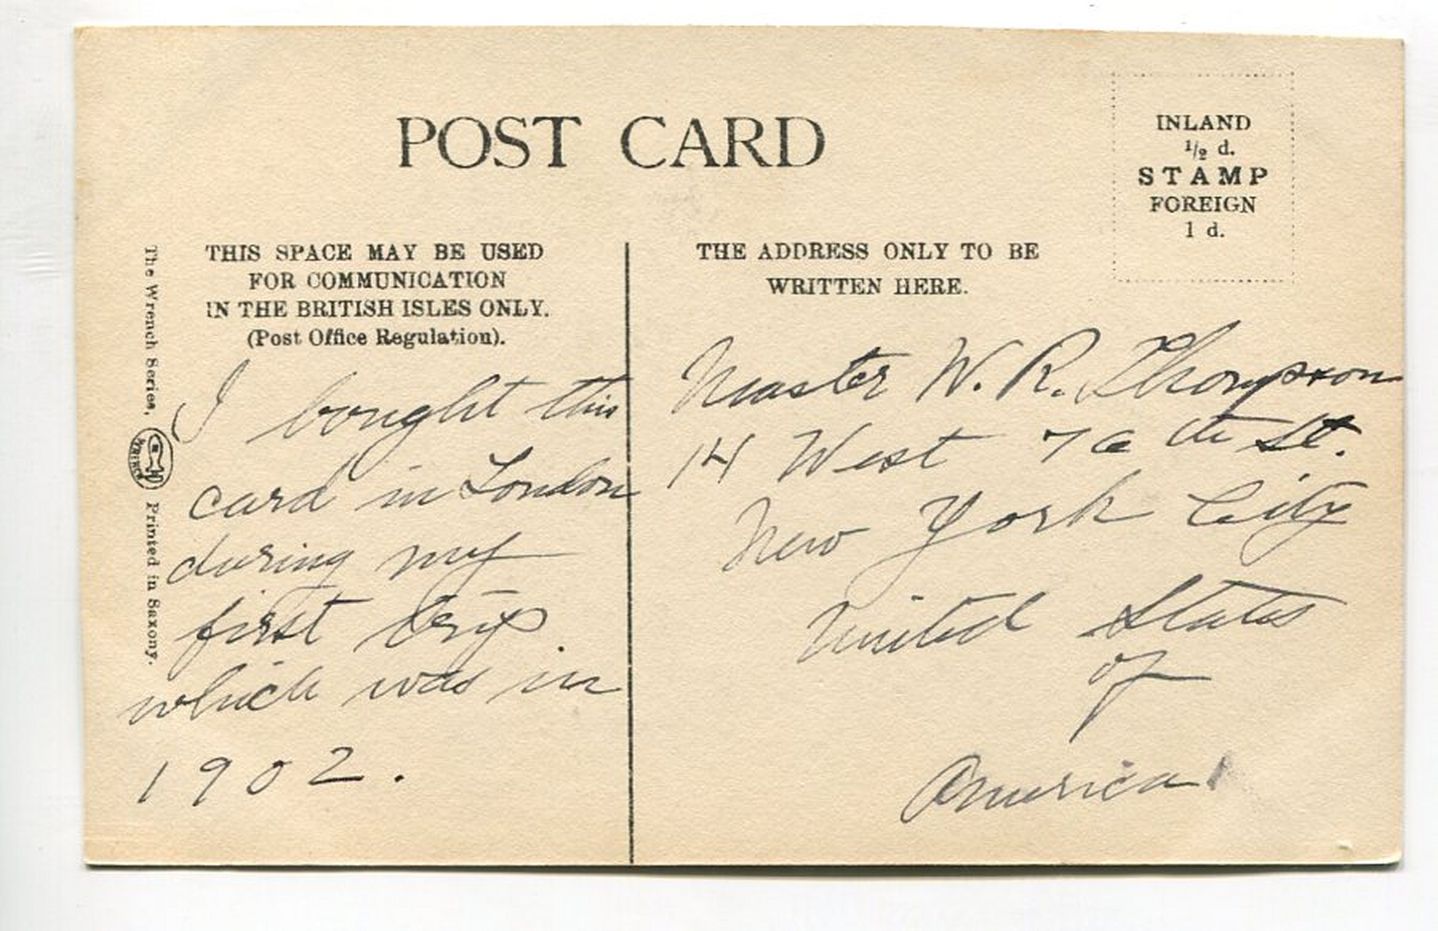 POST CARD
INLAND
1/2 d.
STAMP
FOREIGN
1 d.
THIS SPACE MAY BE USED
FOR COMMUNICATION
IN THE BRITISH ISLES ONLY.
(Post Office Regulation).
THE ADDRESS ONLY TO BE
WRITTEN HERE.
The Wrench Series,
WRENCH
Printed in Saxony.
I bought this
card in London
during my
first trip
which was in
1902.
Master W. R. Thompson
14 West 76th St.
New York City
United States
of
America